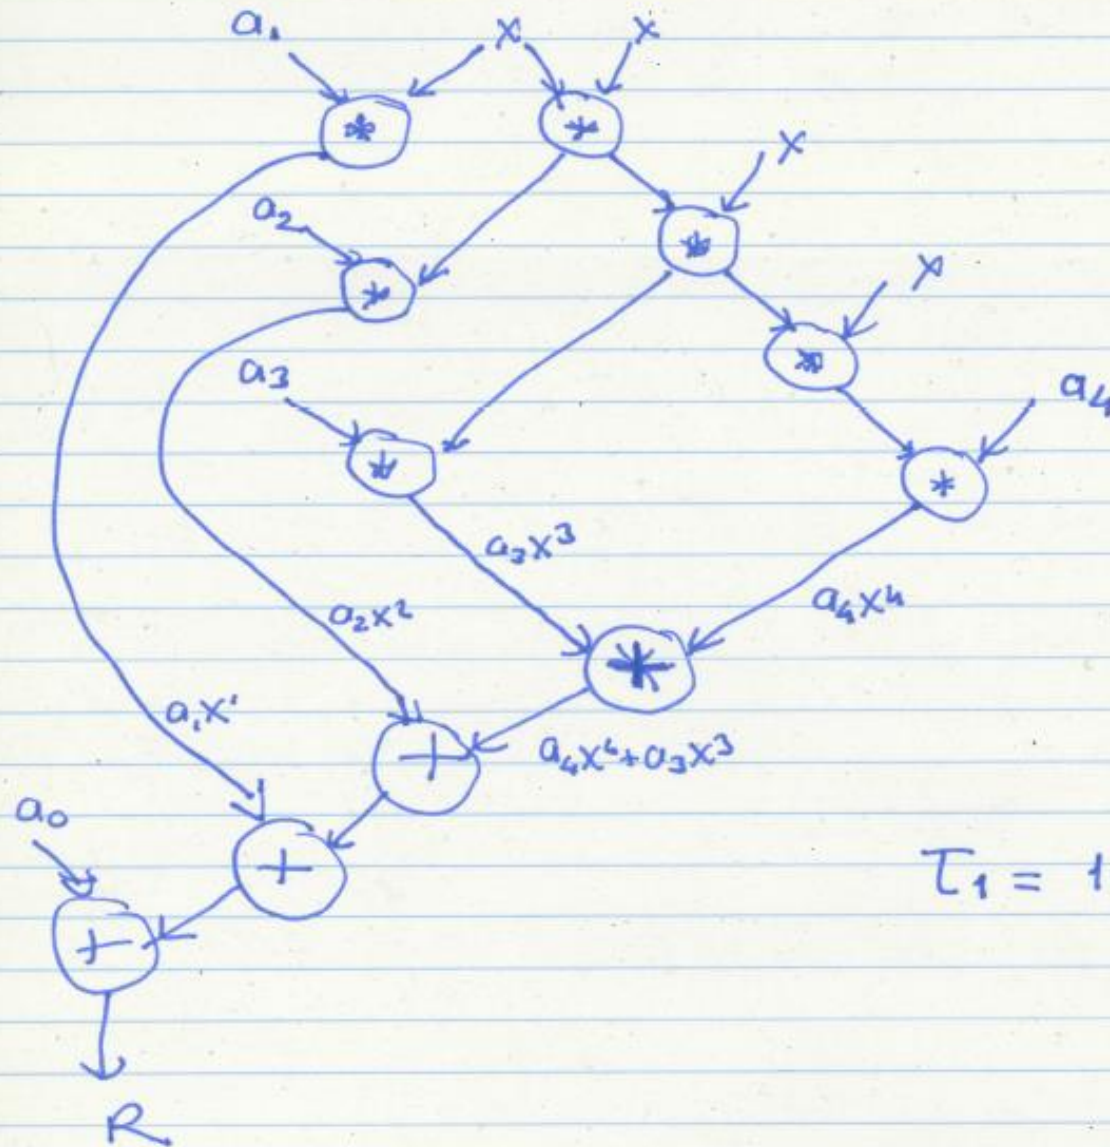 a₁ x x
* *
x
a₂
* *
x
a₃
*
a₄
* *
a₃x³
a₂x² a₄x⁴
*
a₁x¹
+ a₄x⁴+a₃x³
a₀
+ T₁ = 1
+
R